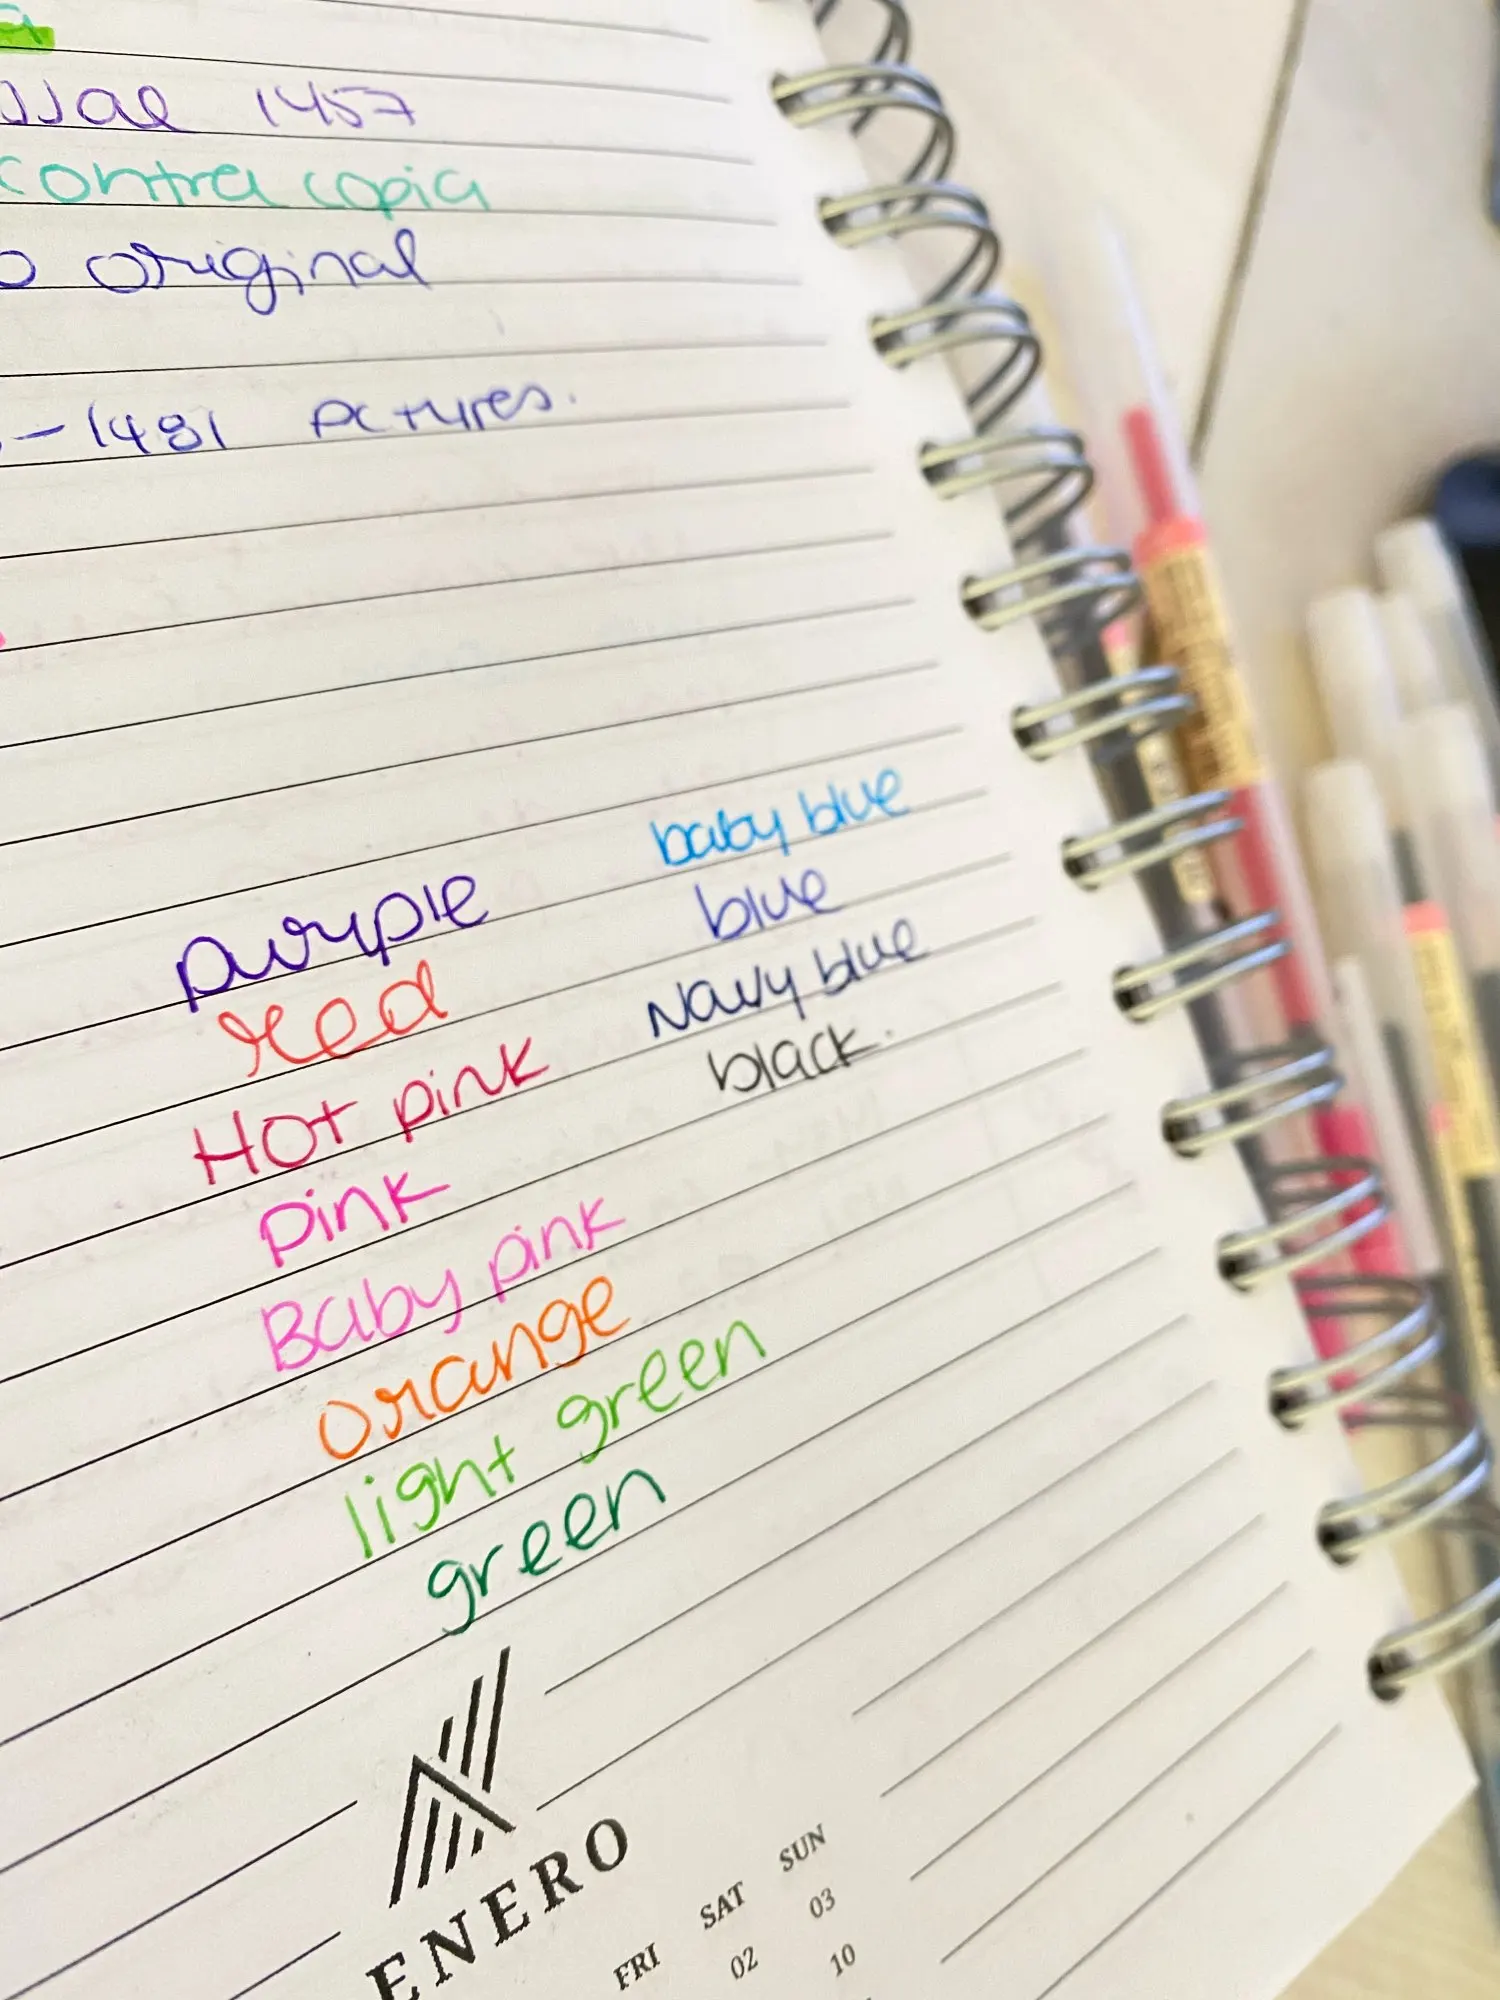 1457
contra copia
original
-1481 pictures.
purple
red
Hot pink
pink
Baby pink
orange
light green
green
baby blue
blue
Navy blue
black.
ENERO
FRI SAT SUN
02 03
10